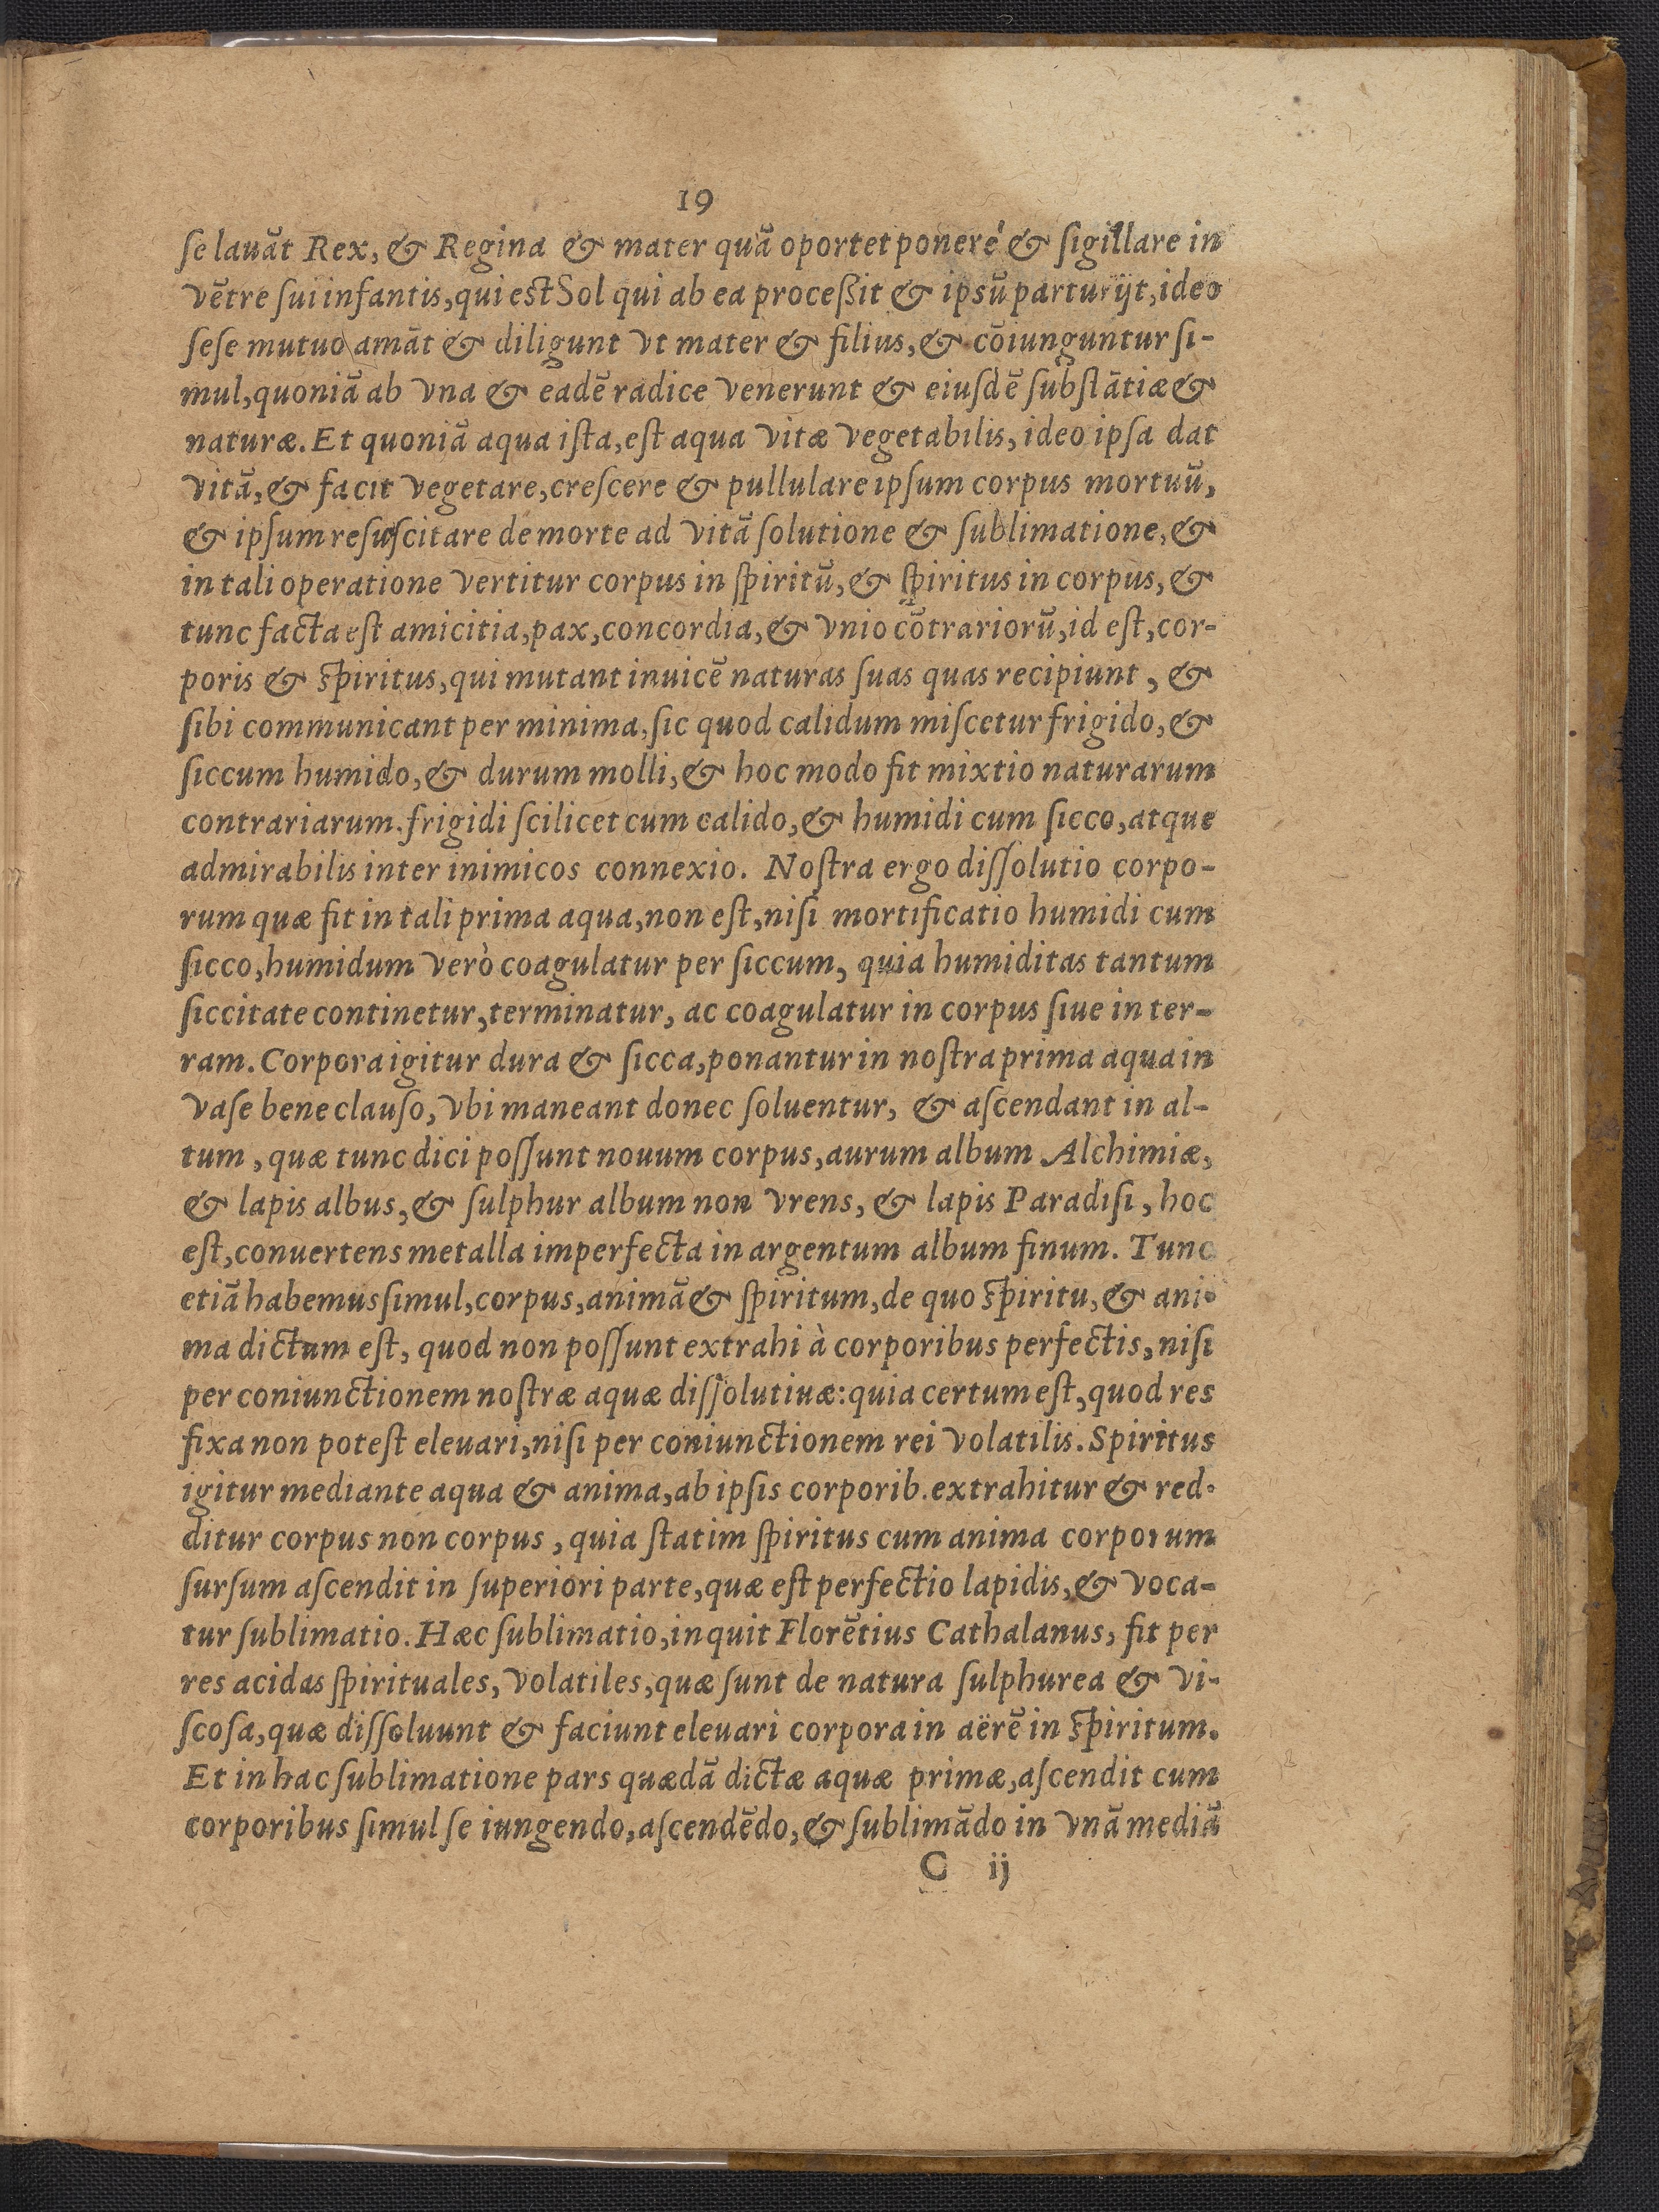 19
ſe lauāt Rex, & Regina & mater quā oportet ponere & ſigillare in
vētre ſui infantis, qui eſt Sol qui ab ea proceßit & ipsū parturijt, ideo
ſeſe mutuo amāt & diligunt vt mater & filius, & cōiunguntur ſi-
mul, quoniā ab vna & eadē radice venerunt & eiuſdē ſubſtātiæ &
naturæ. Et quoniā aqua iſta, eſt aqua vitæ vegetabilis, ideo ipſa dat
vitā, & facit vegetare, creſcere & pullulare ipſum corpus mortuū,
& ipſum reſuſcitare de morte ad vitā ſolutione & ſublimatione, &
in tali operatione vertitur corpus in ſpiritū, & ſpiritus in corpus, &
tunc facta eſt amicitia, pax, concordia, & vnio cōtrariorū, id eſt, cor-
poris & ſpiritus, qui mutant inuicē naturas ſuas quas recipiunt, &
ſibi communicant per minima, ſic quod calidum miſcetur frigido, &
ſiccum humido, & durum molli, & hoc modo fit mixtio naturarum
contrariarum. frigidi ſcilicet cum calido, & humidi cum ſicco, atque
admirabilis inter inimicos connexio. Noſtra ergo diſſolutio corpo-
rum quæ fit in tali prima aqua, non eſt, niſi mortificatio humidi cum
ſicco, humidum verò coagulatur per ſiccum, quia humiditas tantum
ſiccitate continetur, terminatur, ac coagulatur in corpus ſiue in ter-
ram. Corpora igitur dura & ſicca, ponantur in noſtra prima aqua in
vaſe bene clauſo, vbi maneant donec ſoluentur, & aſcendant in al-
tum, quæ tunc dici poſſunt nouum corpus, aurum album Alchimiæ,
& lapis albus, & ſulphur album non vrens, & lapis Paradiſi, hoc
eſt, conuertens metalla imperfecta in argentum album finum. Tunc
etiā habemus ſimul, corpus, animā & ſpiritum, de quo ſpiritu, & ani-
ma dictum eſt, quod non poſſunt extrahi à corporibus perfectis, niſi
per coniunctionem noſtræ aquæ diſſolutiuæ: quia certum eſt, quod res
fixa non poteſt eleuari, niſi per coniunctionem rei volatilis. Spiritus
igitur mediante aqua & anima, ab ipſis corporib. extrahitur & red-
ditur corpus non corpus, quia ſtatim ſpiritus cum anima corporum
ſurſum aſcendit in ſuperiori parte, quæ eſt perfectio lapidis, & voca-
tur ſublimatio. Hæc ſublimatio, inquit Florētius Cathalanus, fit per
res acidas ſpirituales, volatiles, quæ ſunt de natura ſulphurea & vi-
ſcoſa, quæ diſſoluunt & faciunt eleuari corpora in aërē in ſpiritum.
Et in hac ſublimatione pars quædā dictæ aquæ primæ, aſcendit cum
corporibus ſimul ſe iungendo, aſcendēdo, & ſublimādo in vnā mediā
C ij